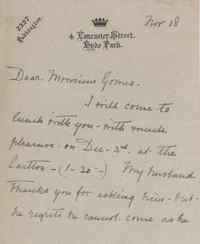 2327
Paddington.
Nov 18
4 Lancaster Street.
Hyde Park.
Dear Monsieur Gomes.
I will come to
lunch with you - with much
pleasure on Dec - 3rd. at the
Carlton - (1-30-) My husband
thanks you for asking him - but
he regrets he cannot come as he